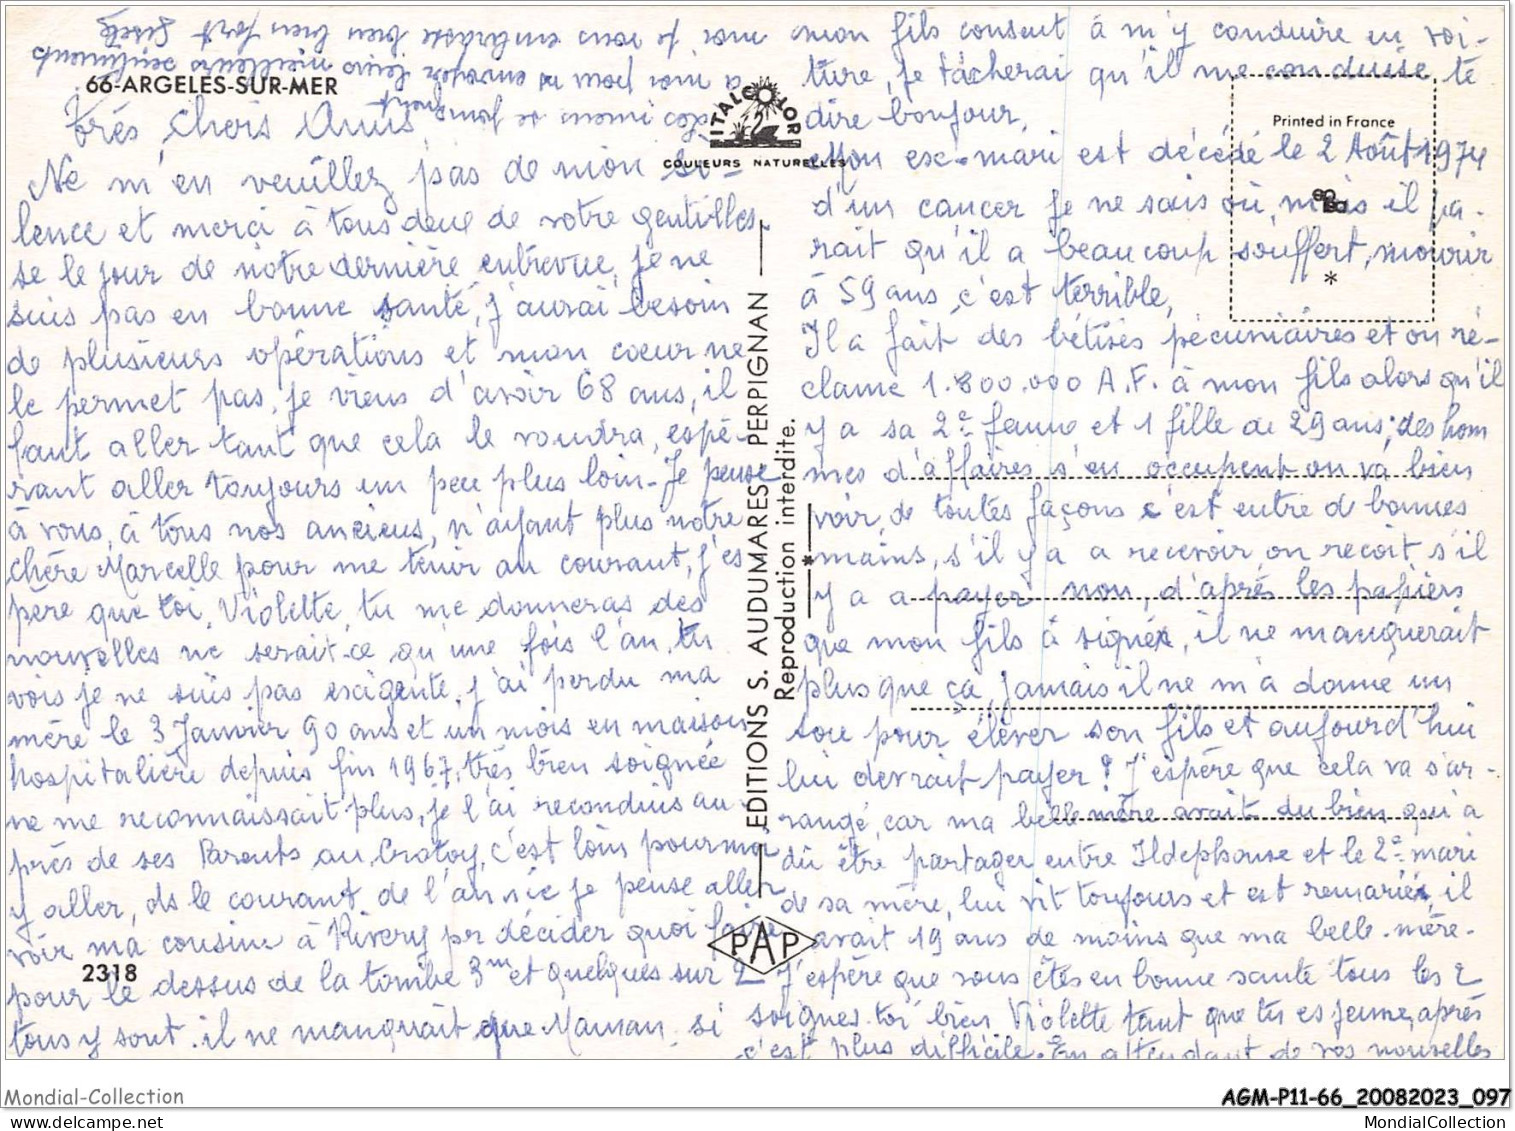 66-ARGELES-SUR-MER
Très Chers Amis
Ne m'en veuillez pas de mon si-
lence et merci à tous deux de votre gentilles
se le jour de notre dernière entrevue, je ne
suis pas en bonne santé, j'aurai besoin
de plusieurs opérations et mon coeur ne
le permet pas, je viens d'avoir 68 ans, il
faut aller tant que cela le voudra, espé-
rant aller toujours un peu plus loin - Je pense
à vous, à tous nos anciens, n'ayant plus notre
chère Marcelle pour me tenir au courant, j'es
père que toi, Violette, tu me donneras des
nouvelles ne serait-ce qu'une fois l'an, tu
vois je ne suis pas exigente, j'ai perdu ma
mère le 3 Janvier 90 ans et un mois en maison
hospitalière depuis fin 1967, très bien soignée
ne me reconnaissait plus, je l'ai reconduis au
près de ses Parents au Crotoy, c'est loin pour moi
y aller, ds le courant de l'année je pense aller
voir ma cousine à Rivery pr décider quoi faire
pour le dessus de la tombe 3m et quelques sur 2
tous y sont. il ne manquait que Maman, si
2318
ITALCOLOR
COULEURS NATURELLES
EDITIONS S. AUDUMARES PERPIGNAN
Reproduction interdite.
*
PAP
mon fils consent à m'y conduire en voi-
ture, je tâcherai qu'il me conduise te
dire bonjour,
Mon exc-mari est décédé le 2 Août 1974
d'un cancer je ne sais où, mais il pa-
rait qu'il a beaucoup souffert, mourir
à 59 ans, c'est terrible,
Il a fait des bêtises pécuniaires et on ré-
clame 1.800.000 A.F. à mon fils alors qu'il
y a sa 2e femme et 1 fille de 29 ans; des hom
mes d'affaires s'en occupent on va bien
voir, de toutes façons c'est entre d bonnes
mains, s'il y a a recevoir on recoit s'il
y a a payer non, d'après les papiers
que mon fils à signés, il ne manquerait
plus que ça, jamais il ne m'a donné un
sou pour élever son fils et aujourd'hui
lui devrait payer? J'espère que cela va s'ar-
rangé, car ma belle mère avait du bien qui a
dû être partager entre Ildephonse et le 2e mari
de sa mère, lui vit toujours et est remarié, il
avait 19 ans de moins que ma belle-mère-
J'espère que vous êtes en bonne santé tous les 2
soignes-toi bien Violette tant que tu es jeune, après
c'est plus difficile - En attendant de vos nouvelles
les miens se joignent
a moi pour vs envoyer leurs meilleurs sentiments
moi je vous embrasse bien bien fort Gisèle
Printed in France
*
Mondial-Collection
mondial-collection.com
AGM-P11-66_20082023_097
MondialCollection